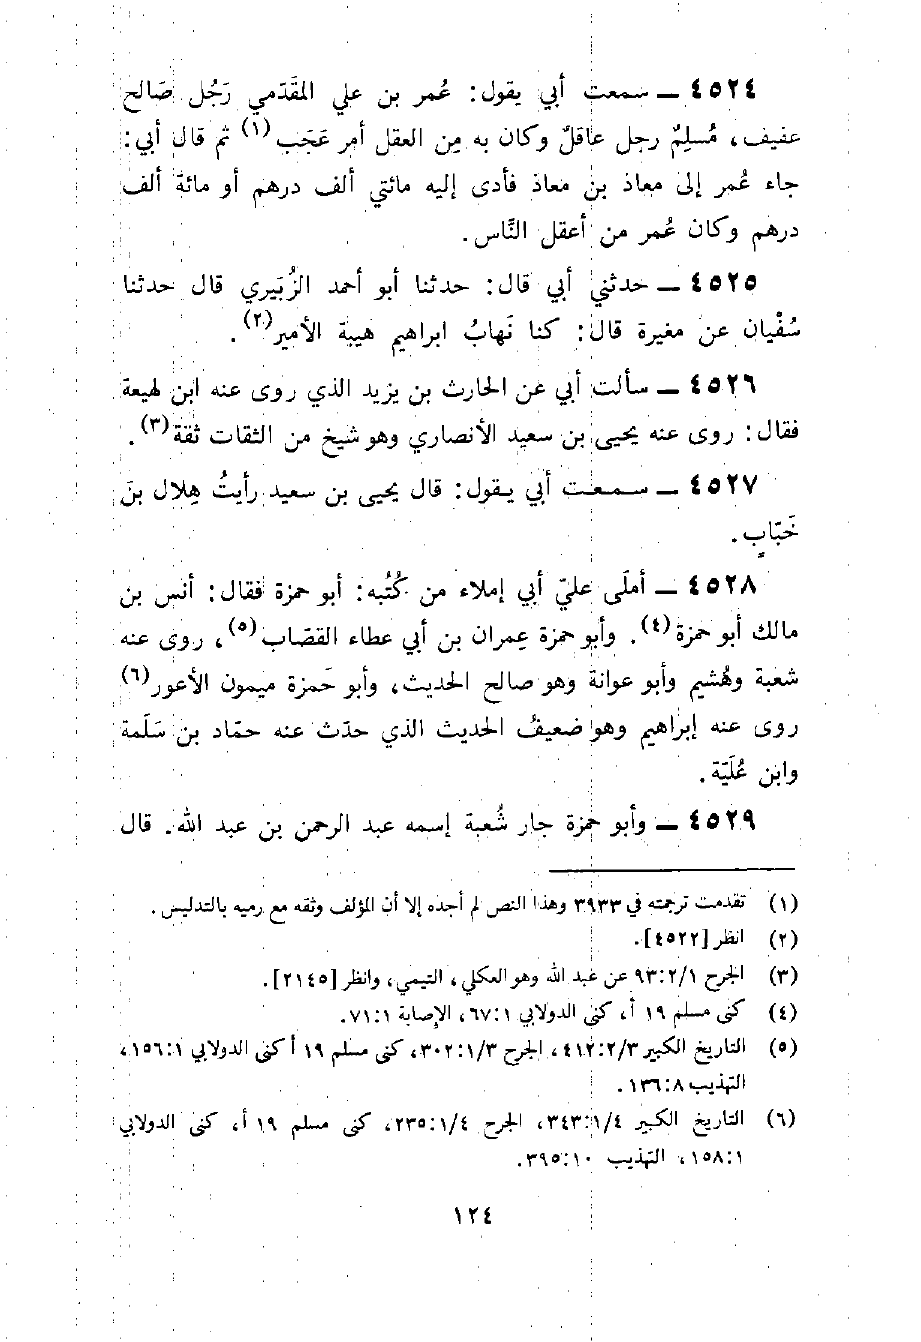 ٤٥٢٤ ــ سمعت أبي يقول: عُمر بن علي المقَدّمي رَجُل صَالح
عفيف، مُسلِمٌ رجل عاقلٌ وكان به مِن العقل أمر عَجَب(١) ثم قال أبي:
جاء عُمر إلى معاذ بن معاذ فأدى إليه مائتي ألف درهم أو مائة ألف
درهم وكان عُمر من أعقل النَّاس.
٤٥٢٥ ــ حدثني أبي قال: حدثنا أبو أحمد الزُبَيري قال حدثنا
سُفْيان عن مغيرة قال: كنا نَهابُ ابراهيم هيبة الأمير(٢).
٤٥٢٦ ــ سألت أبي عن الحارث بن يزيد الذي روى عنه ابن لهيعة
فقال: روى عنه يحيى بن سعيد الأنصاري وهو شيخ من الثقات ثقة(٣).
٤٥٢٧ ــ سمعت أبي يقول: قال يحيى بن سعيد رأيتُ هِلال بنَ
خَبّابٍ.
٤٥٢٨ ــ أملَى عليّ أبي إملاء من كُتُبه: أبو حمزة فقال: أنس بن
مالك أبو حمزة(٤). وأبو حمزة عِمران بن أبي عطاء القصّاب(٥)، روى عنه
شعبة وهُشيم وأبو عوانة وهو صالح الحديث، وأبو حَمزة ميمون الأعور(٦)
روى عنه إبراهيم وهو ضعيفُ الحديث الذي حدّث عنه حمّاد بن سَلَمة
وابن عُلَيّة.
٤٥٢٩ ــ وأبو حمزة جار شُعبة إسمه عبد الرحمن بن عبد الله. قال
(١) تقدمت ترجمته في ٣٩٣٣ وهذا النص لم أجده إلا أن المؤلف وثقه مع رميه بالتدليس.
(٢) انظر [٤٥٢٢].
(٣) الجرح ٩٣:٢/١ عن عبد الله وهو العكلي، التيمي، وانظر [٢١٤٥].
(٤) كنى مسلم ١٩ أ، كنى الدولابي ٦٧:١، الإصابة ٧١:١.
(٥) التاريخ الكبير ٤١٢:٢/٣، الجرح ٣٠٢:١/٣، كنى مسلم ١٩ أ كنى الدولابي ١٥٦:١،
التهذيب ١٣٦:٨.
(٦) التاريخ الكبير ٣٤٣:١/٤، الجرح ٢٣٥:١/٤، كنى مسلم ١٩ أ، كنى الدولابي
١٥٨:١، التهذيب ٣٩٥:١٠.
١٢٤